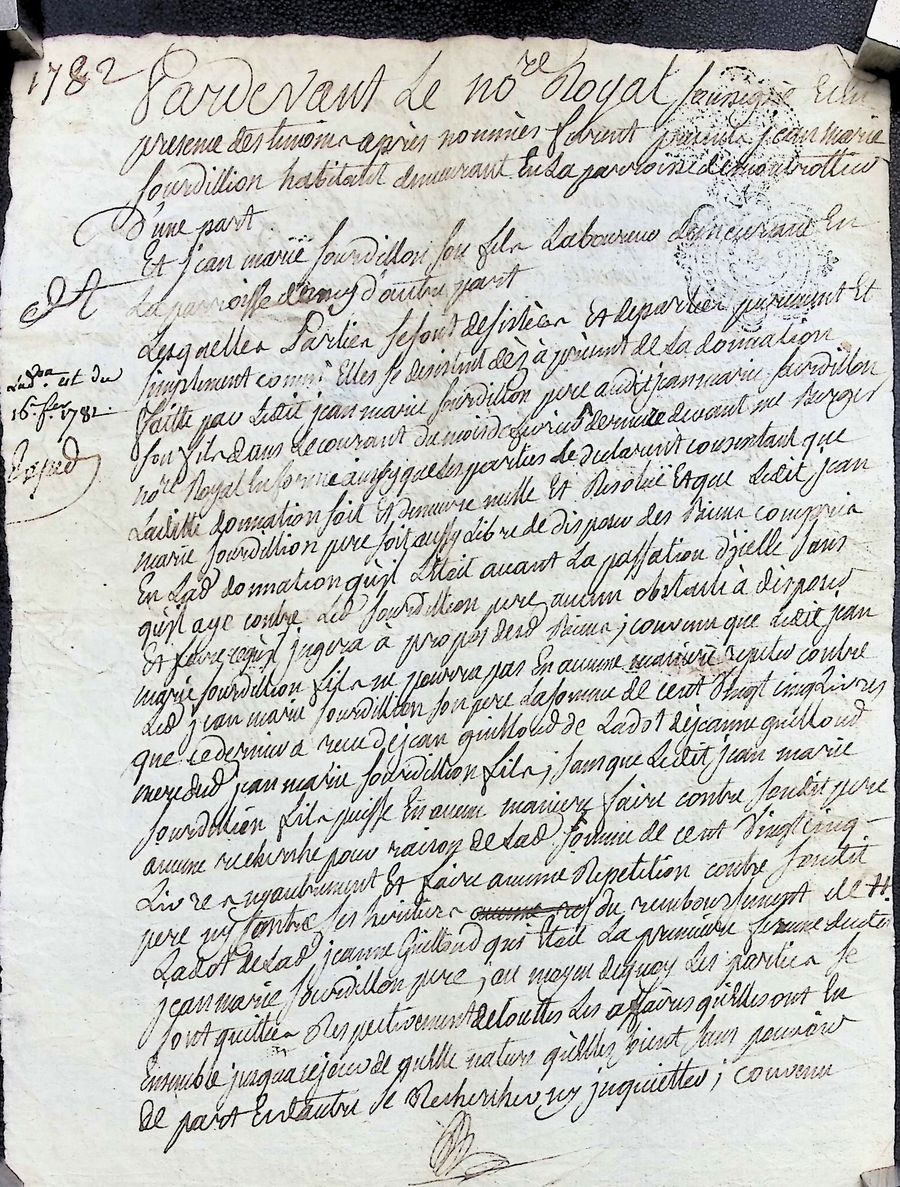 1782
Pardevant Le no.re Royal soussigné Et en
presence des temoins après nommés furent presents jean marie
sourdillion habitant demeurant En La parroisse de montrottier
D'une part
Et jean marie sourdillon son fils Laboureur demeurant En
La parroisse d'ancy d'autre part
Lesquelles Parties se sont desistées Et departies purement Et
simplement comme Elles se desistent dès à présent de La donnation
Lad. don. est du
16 fer. 1782
faitte par Ledit jean marie sourdillon pere audit jean marie sourdillon
son fils dans Le courant du mois de fevrier dernier devant me Burgos
no.re Royal En forme aussy que les parties declarent consentant que
Laditte donnation soit Et demeure nulle Et Resolüe Et que Ledit jean
marie sourdillion pere soit aussy Libre de disposer des Biens compris
En Lad. donnation qu'jl L'etoit avant La passation d'jcelle sans
qu'jl aye contre Led. sourdillion pere aucun obstacle à disposer
Et faire ce qu'jl jugera a propos desd. Biens; convenu que Ledit jean
marie sourdillion fils ne pourra pas En aucune maniere repeter contre
Led. jean marie sourdillion son pere La somme de cent Vingt cinq Livres
que ce dernier a recu de jean guilloud de La dot de jeanne guilloud
mere dud. jean marie sourdillion fils; sans que Ledit jean marie
sourdillion fils puisse En aucune maniere faire contre sondit pere
aucune recherche pour raison de Lad. somme de cent Vingt cinq
Livres ny autrement Et faire aucune Repetition contre sondit
pere ny contre ses heritiers du remboursement de
La dot de Lad. jeanne Guilloud qui Etoit La premiere femme dudit
jean marie sourdillion pere; au moyen de quoy Les parties se
sont quittes Respectivement de touttes Les affaires qu'Elles ont Eu
Ensemble jusqua ce jour de quelle nature qu'Elles soient sans pouvoir
de part Et d'autre se Rechercher ny jnquietter; convenu